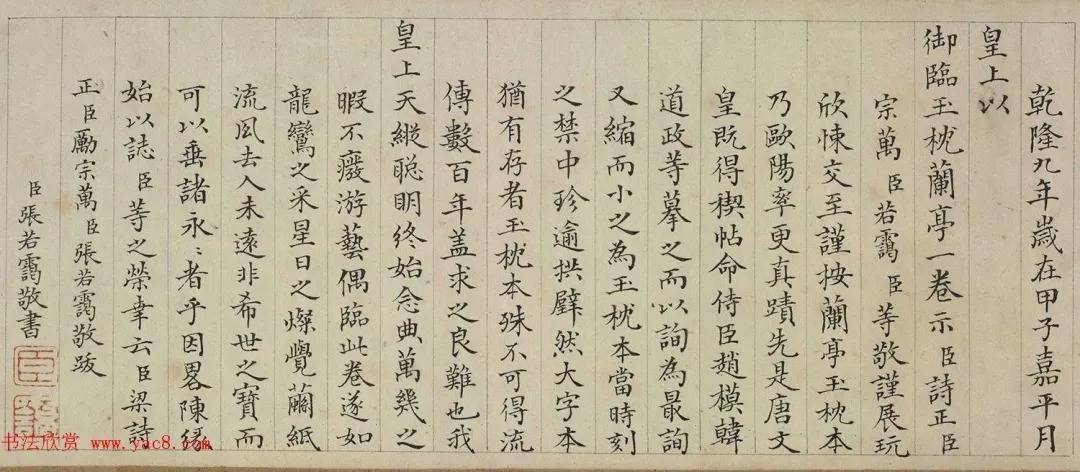 乾隆九年歲在甲子嘉平月
皇上以
御臨玉枕蘭亭一卷示臣詩正臣
宗萬臣若靄臣等敬謹展玩
欣悚交至謹按蘭亭玉枕本
乃歐陽率更真蹟先是唐文
皇既得禊帖命侍臣趙模韓
道政等摹之而以詢為最詢
又縮而小之為玉枕本當時刻
之禁中珍逾拱璧然大字本
猶有存者玉枕本殊不可得流
傳數百年盖求之良難也我
皇上天縱聰明終始念典萬幾之
暇不癈游藝偶臨此卷遂如
龍鸞之采星日之燦覺繭紙
流風去人未遠非希世之寶而
可以垂諸永〻者乎因畧陳緣
始以誌臣等之榮幸云臣梁詩
正臣勵宗萬臣張若靄敬跋
臣張若靄敬書
臣
书法欣赏 www.yac8.com